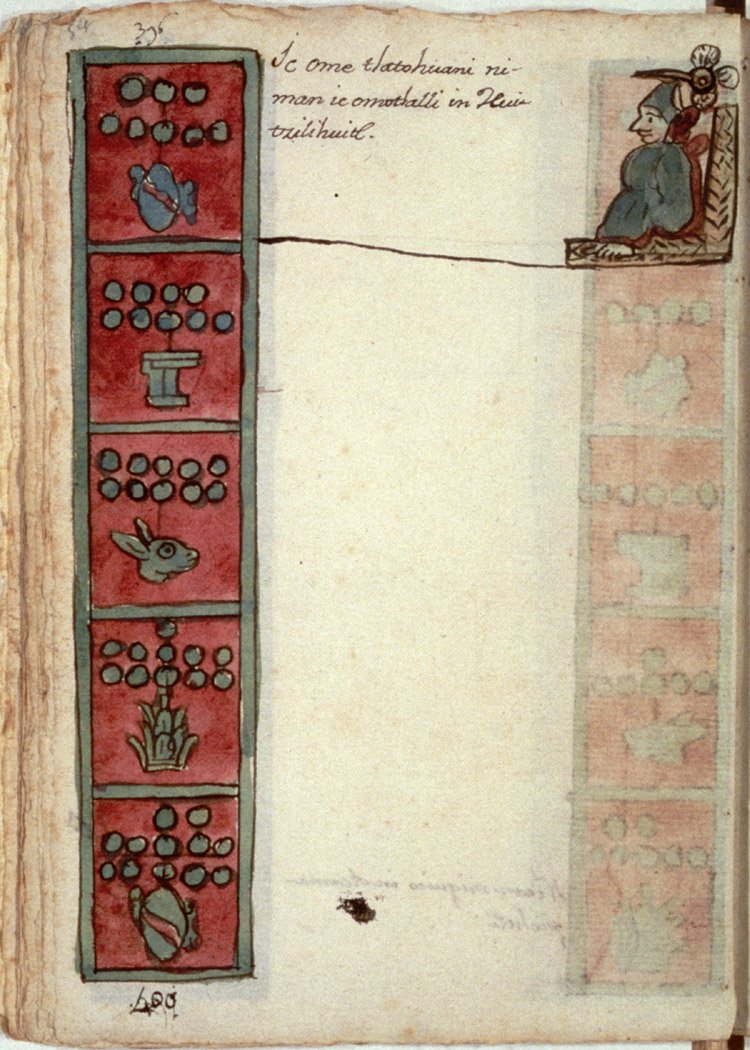 396
Ic ome tlatohuani ni-
man ic omotlalli in Hui
tzilihuitl.
400